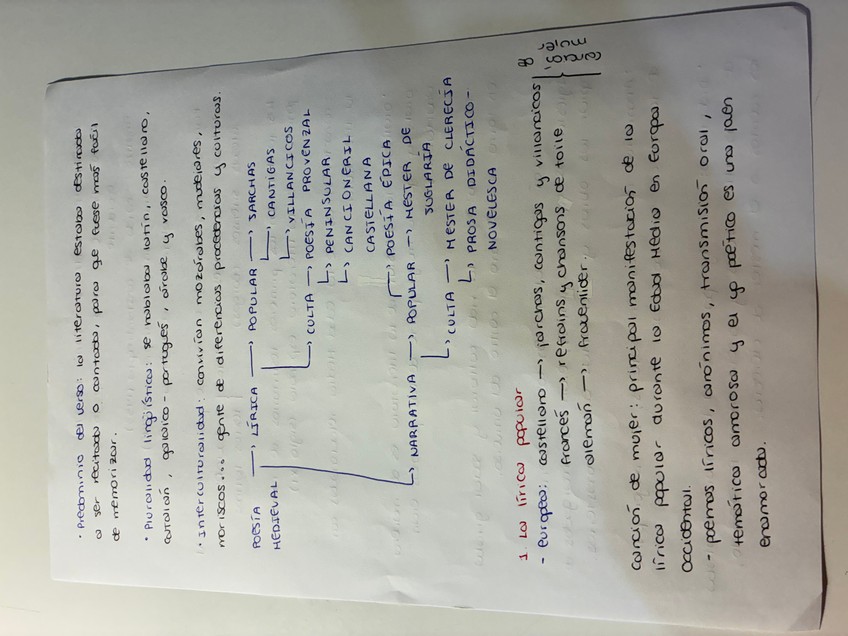 · Predominio del verso: la literatura estaba destinada
a ser recitada o cantada, para que fuese más fácil
de memorizar.
· Pluralidad lingüística: se hablaba latín, castellano,
catalán, galaico-portugués, árabe y vasco.
· Interculturalidad: convivían mozárabes, mudéjares,
moriscos... gente de diferencias procedencias y culturas.
POESÍA MEDIEVAL → LÍRICA → POPULAR → JARCHAS
→ CANTIGAS
→ VILLANCICOS
→ CULTA → POESÍA PROVENZAL
→ PENINSULAR
→ CANCIONERIL
CASTELLANA
→ NARRATIVA → POPULAR → POESÍA ÉPICA
→ MESTER DE
JUGLARÍA
→ CULTA → MESTER DE CLERECÍA
→ PROSA DIDÁCTICO-
NOVELESCA
1. La lírica popular
- Europea: castellano → jarchas, cantigas y villancicos
francés → refrains y chansons de toile
alemán → frauenlider.
canción de mujer: principal manifestación de la
lírica popular durante la Edad Media en Europa
occidental.
- poemas líricos, anónimos, transmisión oral,
temática amorosa y el yo poético es una joven
enamorada.